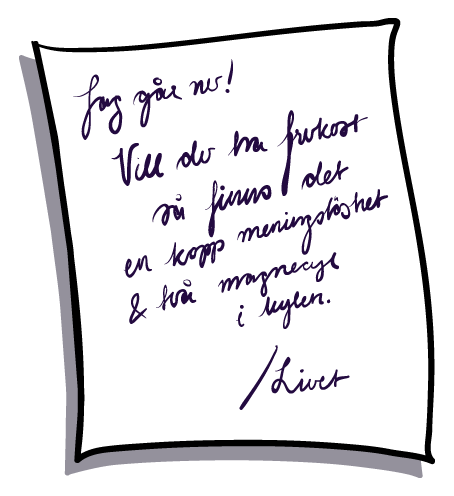 Jag går nu!
Vill du ha frukost
så finns det
en kopp meningslöshet
& två magnecyl
i kylen.
/Livet